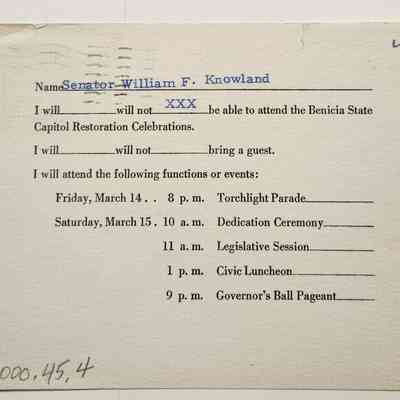 Name Senator William F. Knowland
I will______will not XXX be able to attend the Benicia State
Capitol Restoration Celebrations.
I will______will not______bring a guest.
I will attend the following functions or events:
Friday, March 14 . . 8 p. m. Torchlight Parade______
Saturday, March 15 . 10 a. m. Dedication Ceremony______
11 a. m. Legislative Session______
1 p. m. Civic Luncheon______
9 p. m. Governor's Ball Pageant______
000.45.4